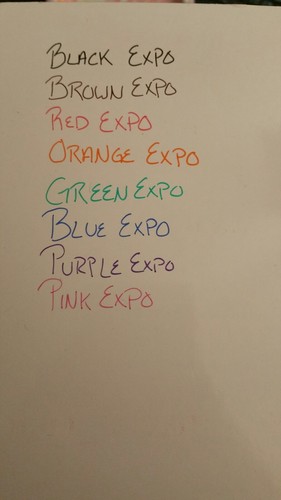 Black Expo
Brown Expo
Red Expo
Orange Expo
Green Expo
Blue Expo
Purple Expo
Pink Expo